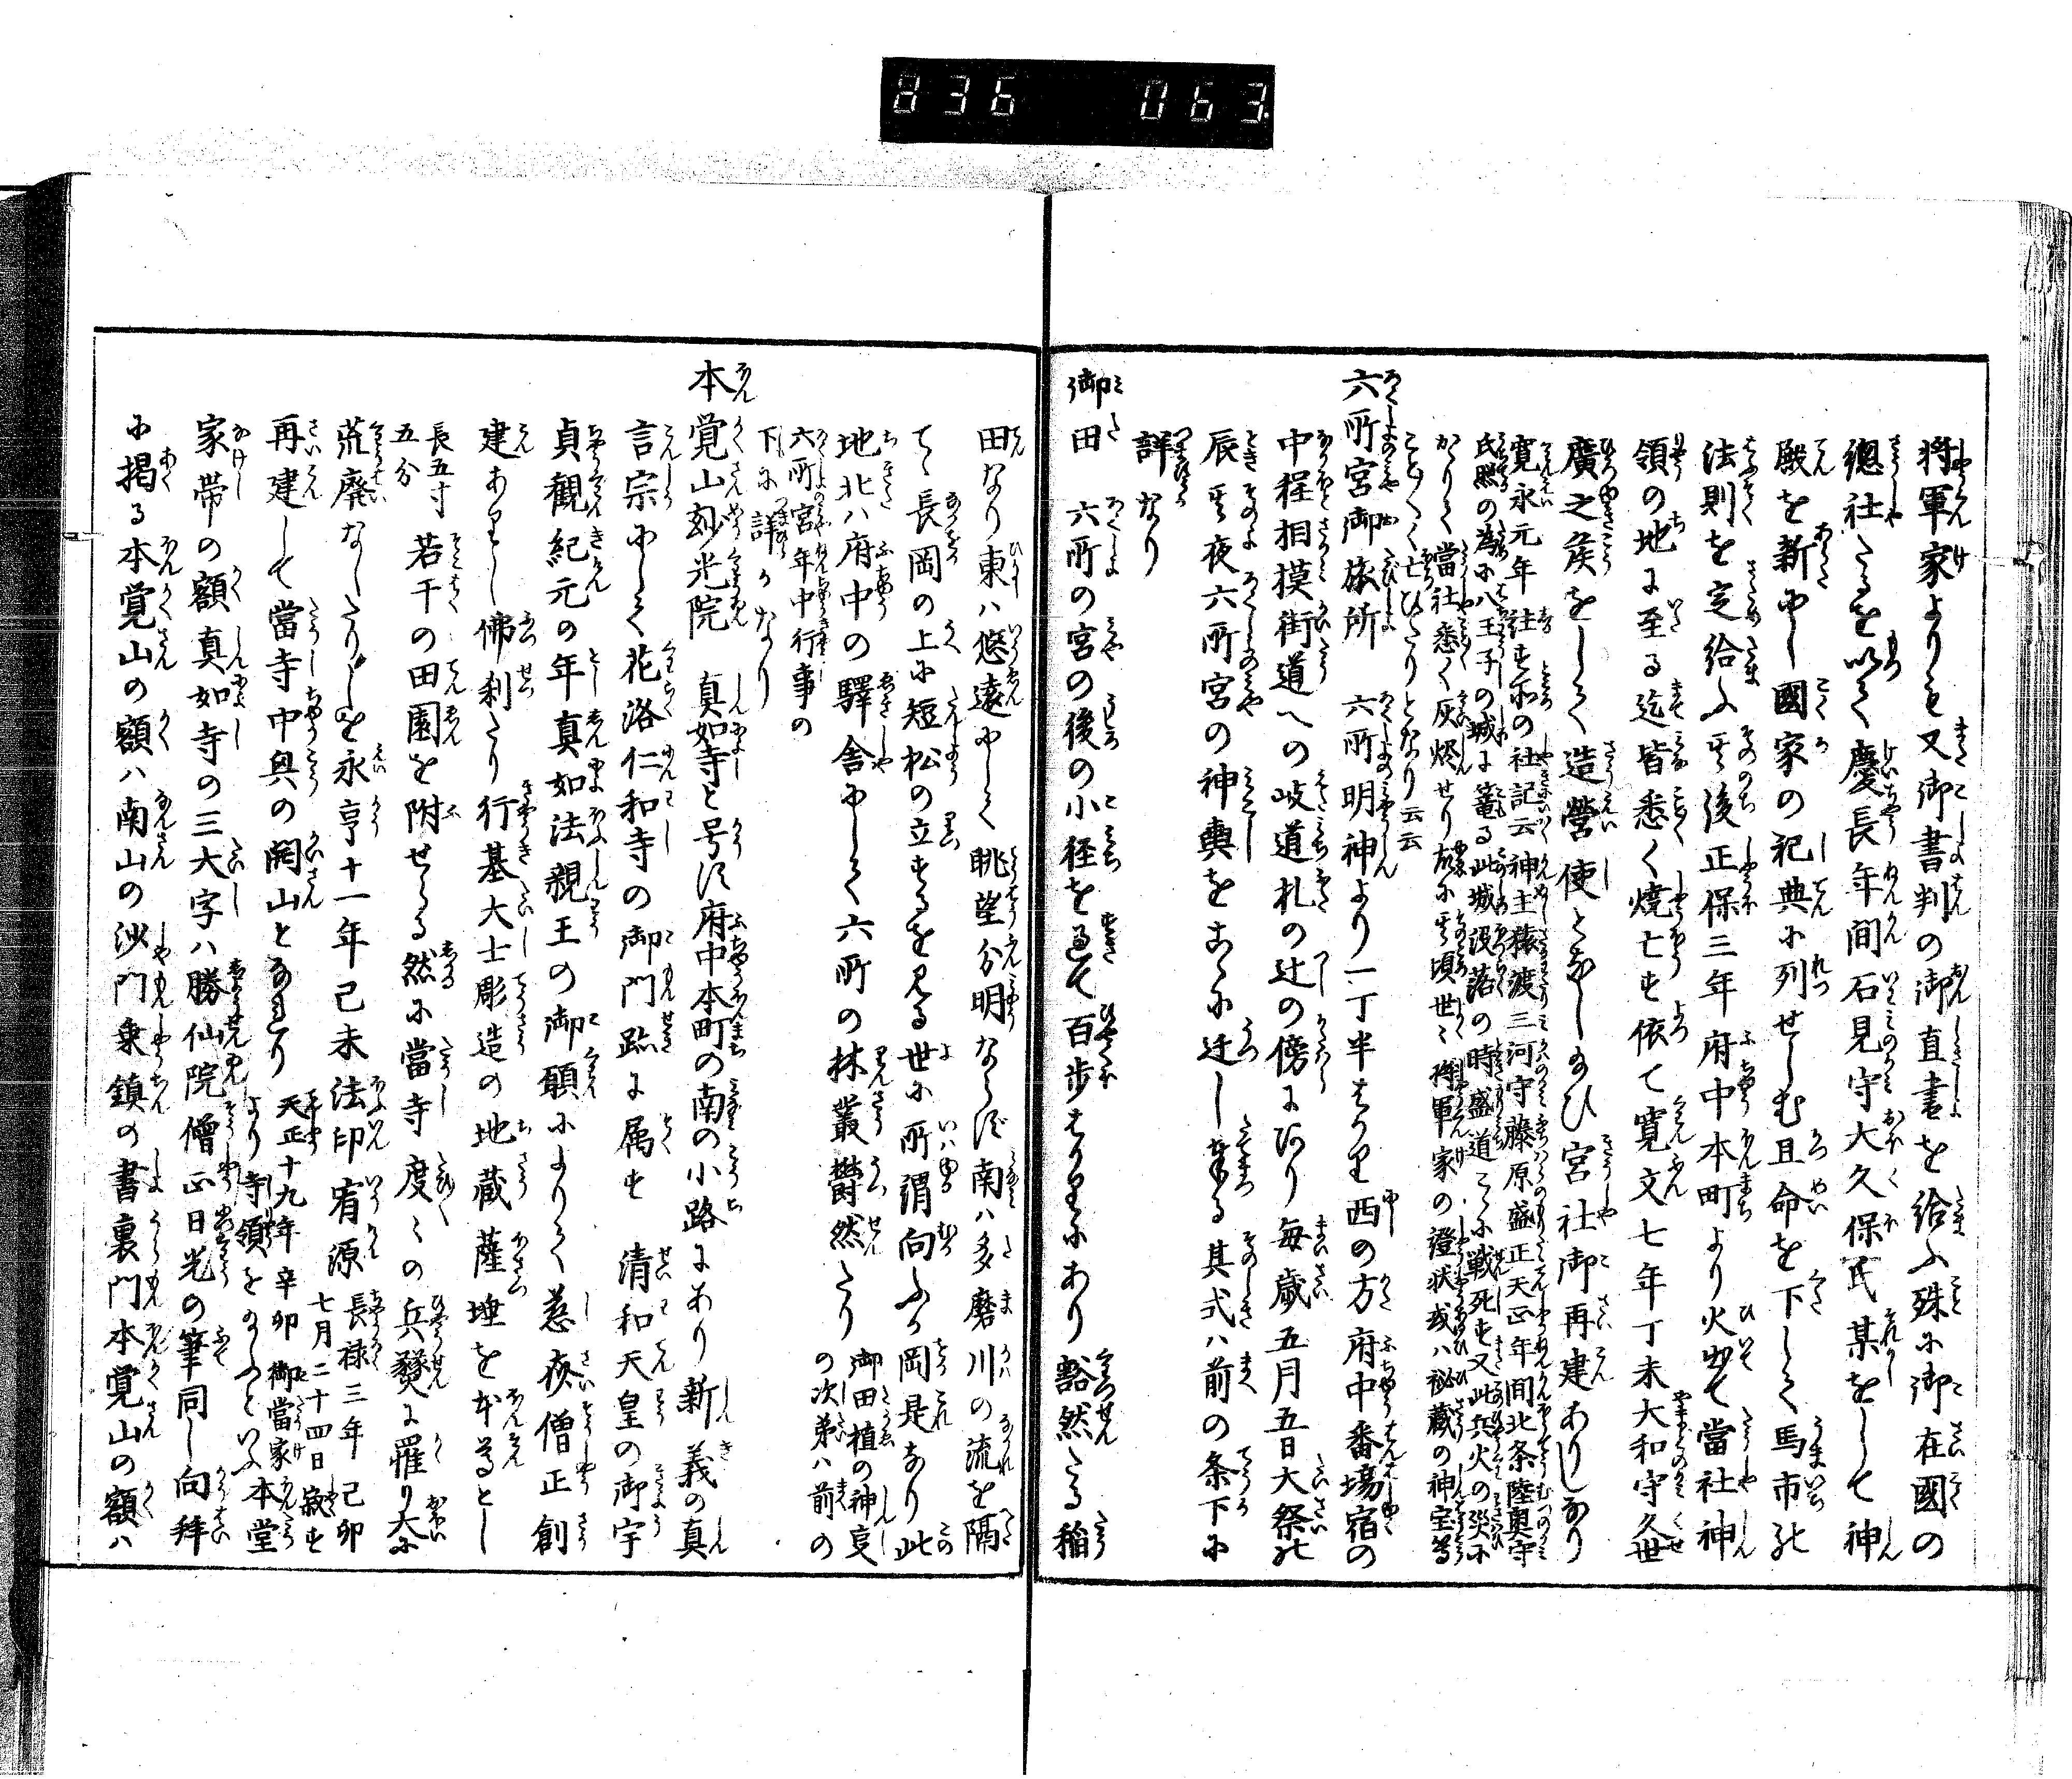 836 063
将軍家よりも又御書判の御直書を給ふ殊に御在國の
總社たるを以て慶長年間石見守大久保氏某をして神
殿を新にし國家の祀典に列せしむ且命を下して馬市の
法則を定給ふ其後正保三年府中本町より火出て當社神
領の地に至る迄皆悉く燒亡す依て寛文七年丁未大和守久世
廣之侯をして造營使となし給ひ宮社御再建ありしなり
寛永元年註す所の社記云神主猿渡三河守藤原盛正天正年間北条陸奥守
氏照の為に八王子の城に篭る此城没落の時盛道こゝに戦死す又此兵火の災に
かゝりて當社悉く灰燼せり故に其頃世々将軍家の證状或ハ秘蔵の神宝等
こと〴〵く亡ひたりとなり云云
六所宮御旅所 六所明神より一丁半はかり西の方府中番場宿の
中程相摸街道への岐道札の辻の傍にあり毎歳五月五日大祭の
辰其夜六所宮の神輿をこゝに迁し奉る其式ハ前の条下に
詳なり
御田 六所の宮の後の小径を過て百歩はかりにあり豁然たる稲
田なり東ハ悠遠にして眺望分明ならす南ハ多磨川の流を隔
て長岡の上に短松の立るを見る世に所謂向ふの岡是なり此
地北ハ府中の驛舎にして六所の林叢欝然たり 御田植の神事
の次第ハ前の
六所宮年中行事の
下に詳かなり
本覚山妙光院 真如寺と号す府中本町の南の小路にあり新義の真
言宗にして花洛仁和寺の御門跡に属す 清和天皇の御宇
貞觀紀元の年真如法親王の御願によりて慈済僧正創
建ありし佛刹たり行基大士彫造の地蔵薩埵を本尊とし
長五寸
五分 若干の田園を附せらる然に當寺度々の兵燹に罹り大に
荒廢なしたりしを永享十一年己未法印宥源 長禄三年己卯
七月二十四日寂す
再建して當寺中興の開山となれり 天正十九年辛卯御當家
より寺領を給ふといふ 本堂
家帯の額真如寺の三大字ハ勝仙院僧正日光の筆同し向拜
に掲る本覚山の額ハ南山の沙門乗鎮の書裏門本覚山の額ハ